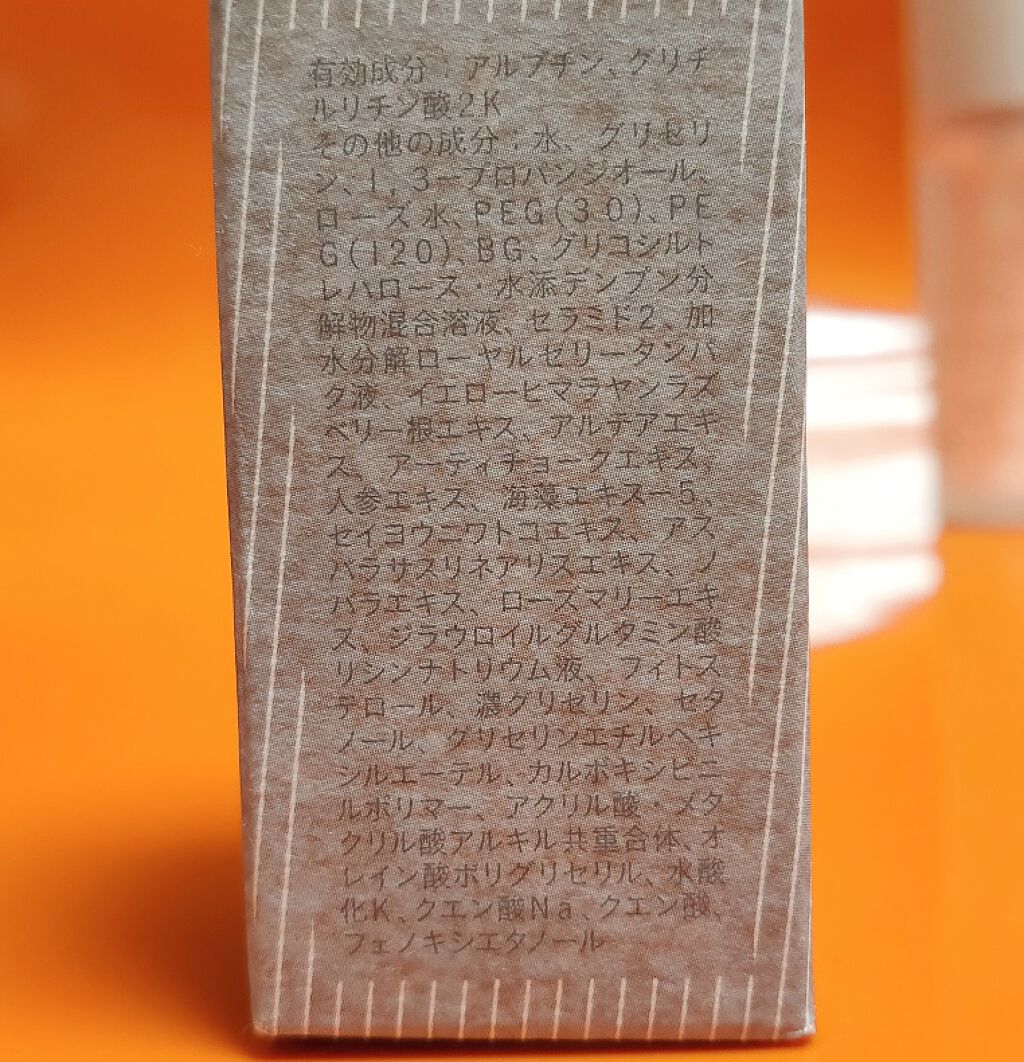 有効成分：アルブチン、グリチ
ルリチン酸2K
その他の成分：水、グリセリ
ン、1，3－プロパンジオール、
ローズ水、PEG(30)、PE
G(120)、BG、グリコシルト
レハロース・水添デンプン分
解物混合溶液、セラミド2、加
水分解ローヤルゼリータンパ
ク液、イエローヒマラヤンラズ
ベリー根エキス、アルテアエキ
ス、アーティチョークエキス、
人参エキス、海藻エキス－5、
セイヨウニワトコエキス、アス
パラサスリネアリスエキス、ノ
バラエキス、ローズマリーエキ
ス、ジラウロイルグルタミン酸
リシンナトリウム液、フィトス
テロール、濃グリセリン、セタ
ノール、グリセリンエチルヘキ
シルエーテル、カルボキシビニ
ルポリマー、アクリル酸・メタ
クリル酸アルキル共重合体、オ
レイン酸ポリグリセリル、水酸
化K、クエン酸Na、クエン酸、
フェノキシエタノール